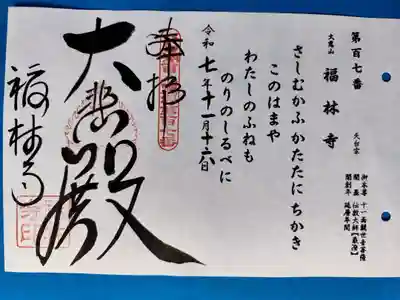 第百七番
大慈山
福林寺
天台宗
御本尊 十一面観世音菩薩
開基 伝教大師【最澄】
開創年 延暦年間
さしむかふかたたにちかき
このはまや
わたしのふねも
のりのしるべに
令和七年十一月十六日
奉拝
大悲殿
福林寺